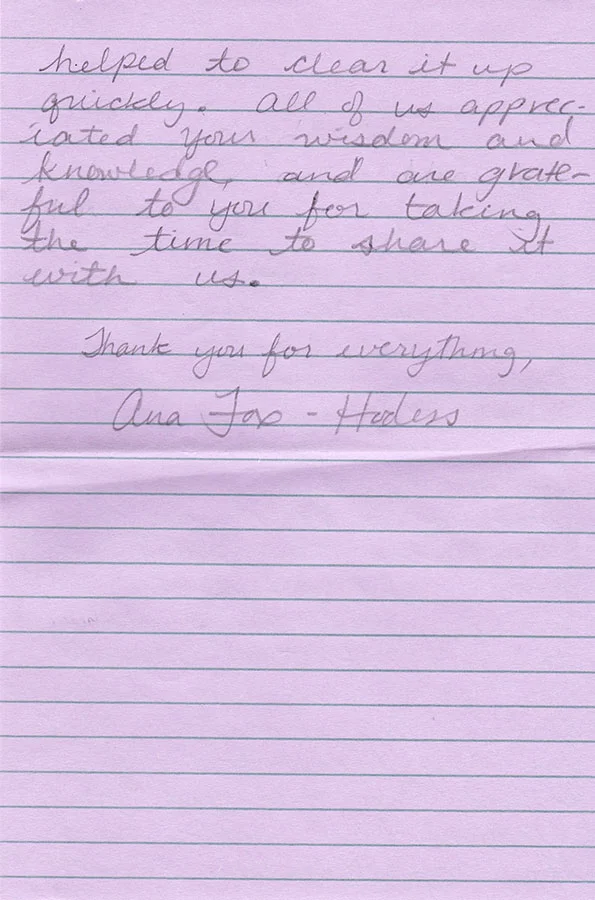 helped to clear it up
quickly. All of us apprec-
iated your wisdom and
knowledge, and are grate-
ful to you for taking
the time to share it
with us.
Thank you for everything,
Ana Fox-Hodess